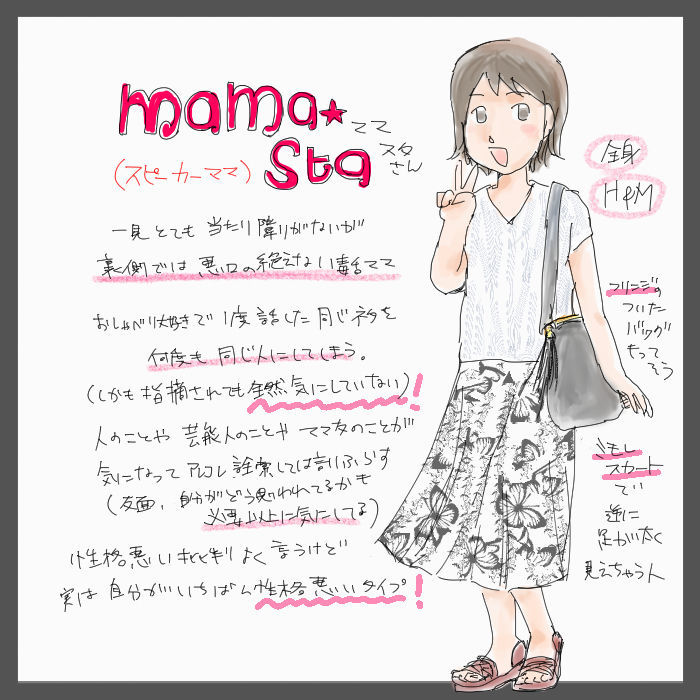 mama★
sta
ママ
スタ
さん
(スピーカーママ)
一見とても当たり障りがないが
裏側では悪口の絶えない毒舌ママ
おしゃべり大好きで1度話した同じネタを
何度も同じ人にしてしまう。
(しかも指摘されても全然気にしていない)!
人のことや芸能人のことやママ友のことが
気になってアレコレ詮索しては言いふらす
(反面、自分がどう思われてるかも
必要以上に気にしてる)
性格悪いキャ よく言うけど
実は自分がいちばん性格悪いタイプ!
全身
H&M
フリンジの
ついた
バッグ
もって
そう
ミモレ
スカート
で
逆に
足が太く
見えちゃう人